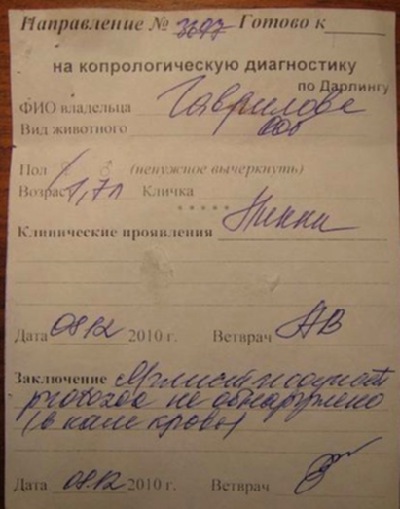 Направление № 3697 Готово к
на копрологическую диагностику
по Дарлингу
ФИО владельца Гаврилова
Вид животного соб
Пол ♀ ♂ (ненужное вычеркнуть)
Возраст 1,7л Кличка
*****
Клинические проявления Пинки
Дата 08.12 2010 г. Ветврач АВ
Заключение Яйца глист и ооцист
не обнаружено
(в кале кровь)
Дата 08.12 2010 г. Ветврач